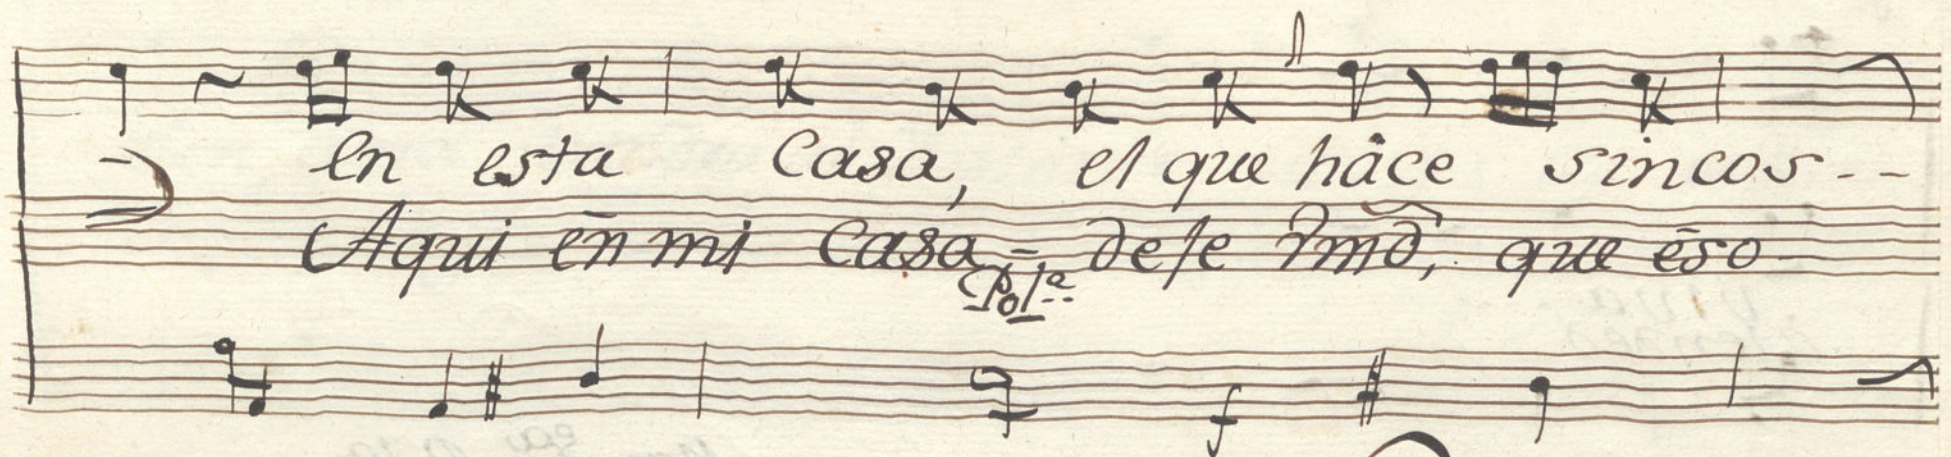 en esta Casa, el que háce sincos--
Aqui en mi Casa - dese Vmd, que eso
Pol.ª